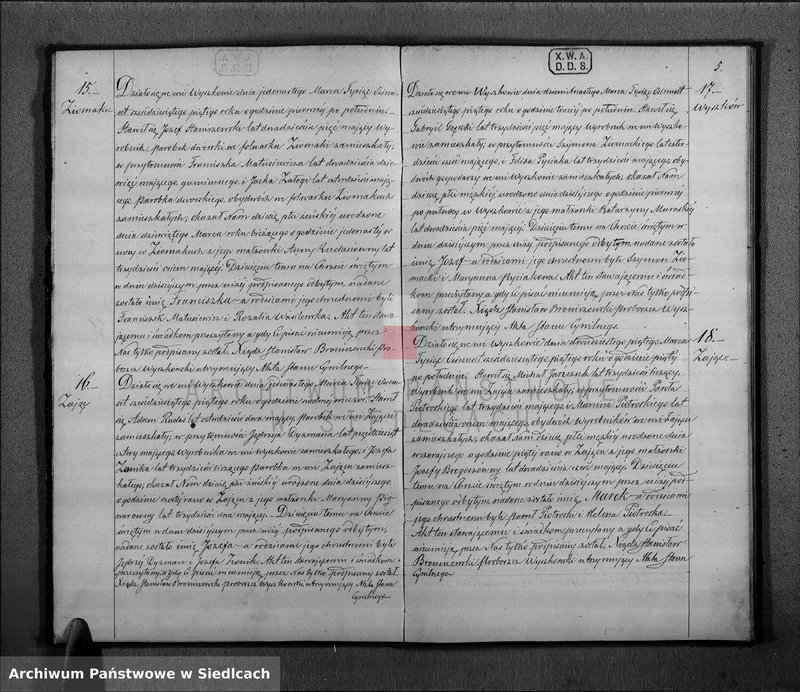 15.
Ziomaki
Działo się we wsi Wyszkowie dnia jedenastego Marca Tysiąc Ośmset
sześćdziesiątego piątego roku o godzinie pierwszej po południu.
Stawił się Józef lat dwadzieścia pięć mający Wyrobnik,
parobek dworski w folwarku Ziomaki zamieszkały;
w przytomności Franciszka Matusiewicza lat dwadzieścia dziewięć
mającego, gumiennego, i Jacka Załogi lat czterdzieści mającego
parobka dworskiego, obydwóch w folwarku Ziomakach
zamieszkałych, okazał Nam dziecię płci żeńskiej urodzone
dnia dziewiątego Marca roku bieżącego o godzinie jedenastej w
nocy w Ziomakach z jego małżonki Anny lat
trzydzieści ośm mającej. Dziecięciu temu na Chrzcie świętym
w dniu dzisiejszym przez niżej podpisanego odbytym, nadane
zostało imię Franciszka a rodzicami jego chrzestnemi byli
Franciszek Matusiewicz i Rozalia Wasilewska. Akt ten stawającemu
i świadkom przeczytany a gdy Ci pisać nieumieją, przez
Nas tylko podpisany został. Xiądz Stanisław Broniszewski Proboszcz
Wyszkowski utrzymujący Akta Stanu Cywilnego.
16.
Zając
Działo się we wsi Wyszkowie dnia jedenastego Marca Tysiąc Ośmset
sześćdziesiątego piątego roku o godzinie siódmej wieczór. Stawił
się Adam Rudaś lat czterdzieści dwa mający, parobek we wsi Zającu
zamieszkały; w przytomności Jędrzeja Dyzmana lat pięćdziesiąt
cztery mającego Wyrobnika we wsi Wyszkowie zamieszkałego; i Józefa
lat trzydzieści liczącego parobka we wsi Zającu zamieszkałego;
okazał Nam dziecię płci żeńskiej urodzone dnia dzisiejszego
o godzinie szóstej rano w Zającu z jego małżonki Maryanny
lat trzydzieści dwa mającej. Dziecięciu temu na Chrzcie
świętym w dniu dzisiejszym przez niżej podpisanego odbytym,
nadane zostało imię Józefa a rodzicami jego chrzestnemi byli
Jędrzej Dyzman i Józefa. Akt ten stawającemu i świadkom
przeczytany, a gdy Ci pisać nieumieją, przez Nas tylko podpisany został.
Xiądz Stanisław Broniszewski Proboszcz Wyszkowski utrzymujący Akta Stanu
Cywilnego
X.W.A.
D.D.S.
5.
17.
Wyszków
Działo się we wsi Wyszkowie dnia Marca Tysiąc Ośmset
sześćdziesiątego piątego roku o godzinie trzeciej po południu. Stawił się
Gabryel lat trzydzieści pięć mający Wyrobnik we wsi Wyszkowie
zamieszkały; w przytomności Szymona Ziomackiego lat czterdzieści
sześć mającego, i Felixa Pyciaka lat trzydzieści mającego, obydwóch
gospodarzy we wsi Wyszkowie zamieszkałych, okazał Nam
dziecię płci męskiej urodzone dnia dzisiejszego o godzinie pierwszej
po północy w Wyszkowie z jego małżonki Katarzyny
lat dwadzieścia pięć mającej. Dziecięciu temu na Chrzcie świętym w
dniu dzisiejszym przez niżej podpisanego odbytym, nadane zostało
imię Józef a rodzicami jego chrzestnemi byli Szymon Ziomacki
i Maryanna Pyciakowa. Akt ten stawającemu i świadkom
przeczytany a gdy Ci pisać nieumieją, przez Nas tylko podpisany
został. Xiądz Stanisław Broniszewski Proboszcz Wyszkowski
utrzymujący Akta Stanu Cywilnego.
18.
Zając
Działo się we wsi Wyszkowie dnia dwudziestego piątego Marca
Tysiąc Ośmset sześćdziesiątego piątego roku o godzinie piątej
po południu. Stawił się Michał lat trzydzieści liczący,
Wyrobnik we wsi Zającu zamieszkały; w przytomności Pawła
Piotrockiego lat trzydzieści mającego i Marcina Piotrockiego lat
dwadzieścia ośm mającego, obydwóch Wyrobników we wsi Zającu
zamieszkałych, okazał Nam dziecię płci męskiej urodzone dnia
wczorajszego o godzinie piątej rano w Zającu z jego małżonki
Józefy lat dwadzieścia sześć mającej. Dziecięciu
temu na Chrzcie świętym w dniu dzisiejszym przez niżej podpisanego
odbytym, nadane zostało imię Marek a rodzicami
jego chrzestnemi byli Paweł Piotrocki i Helena Piotrocka.
Akt ten stawającemu i świadkom przeczytany a gdy Ci pisać
nieumieją, przez Nas tylko podpisany został. Xiądz Stanisław
Broniszewski Proboszcz Wyszkowski utrzymujący Akta Stanu
Cywilnego
Archiwum Państwowe w Siedlcach